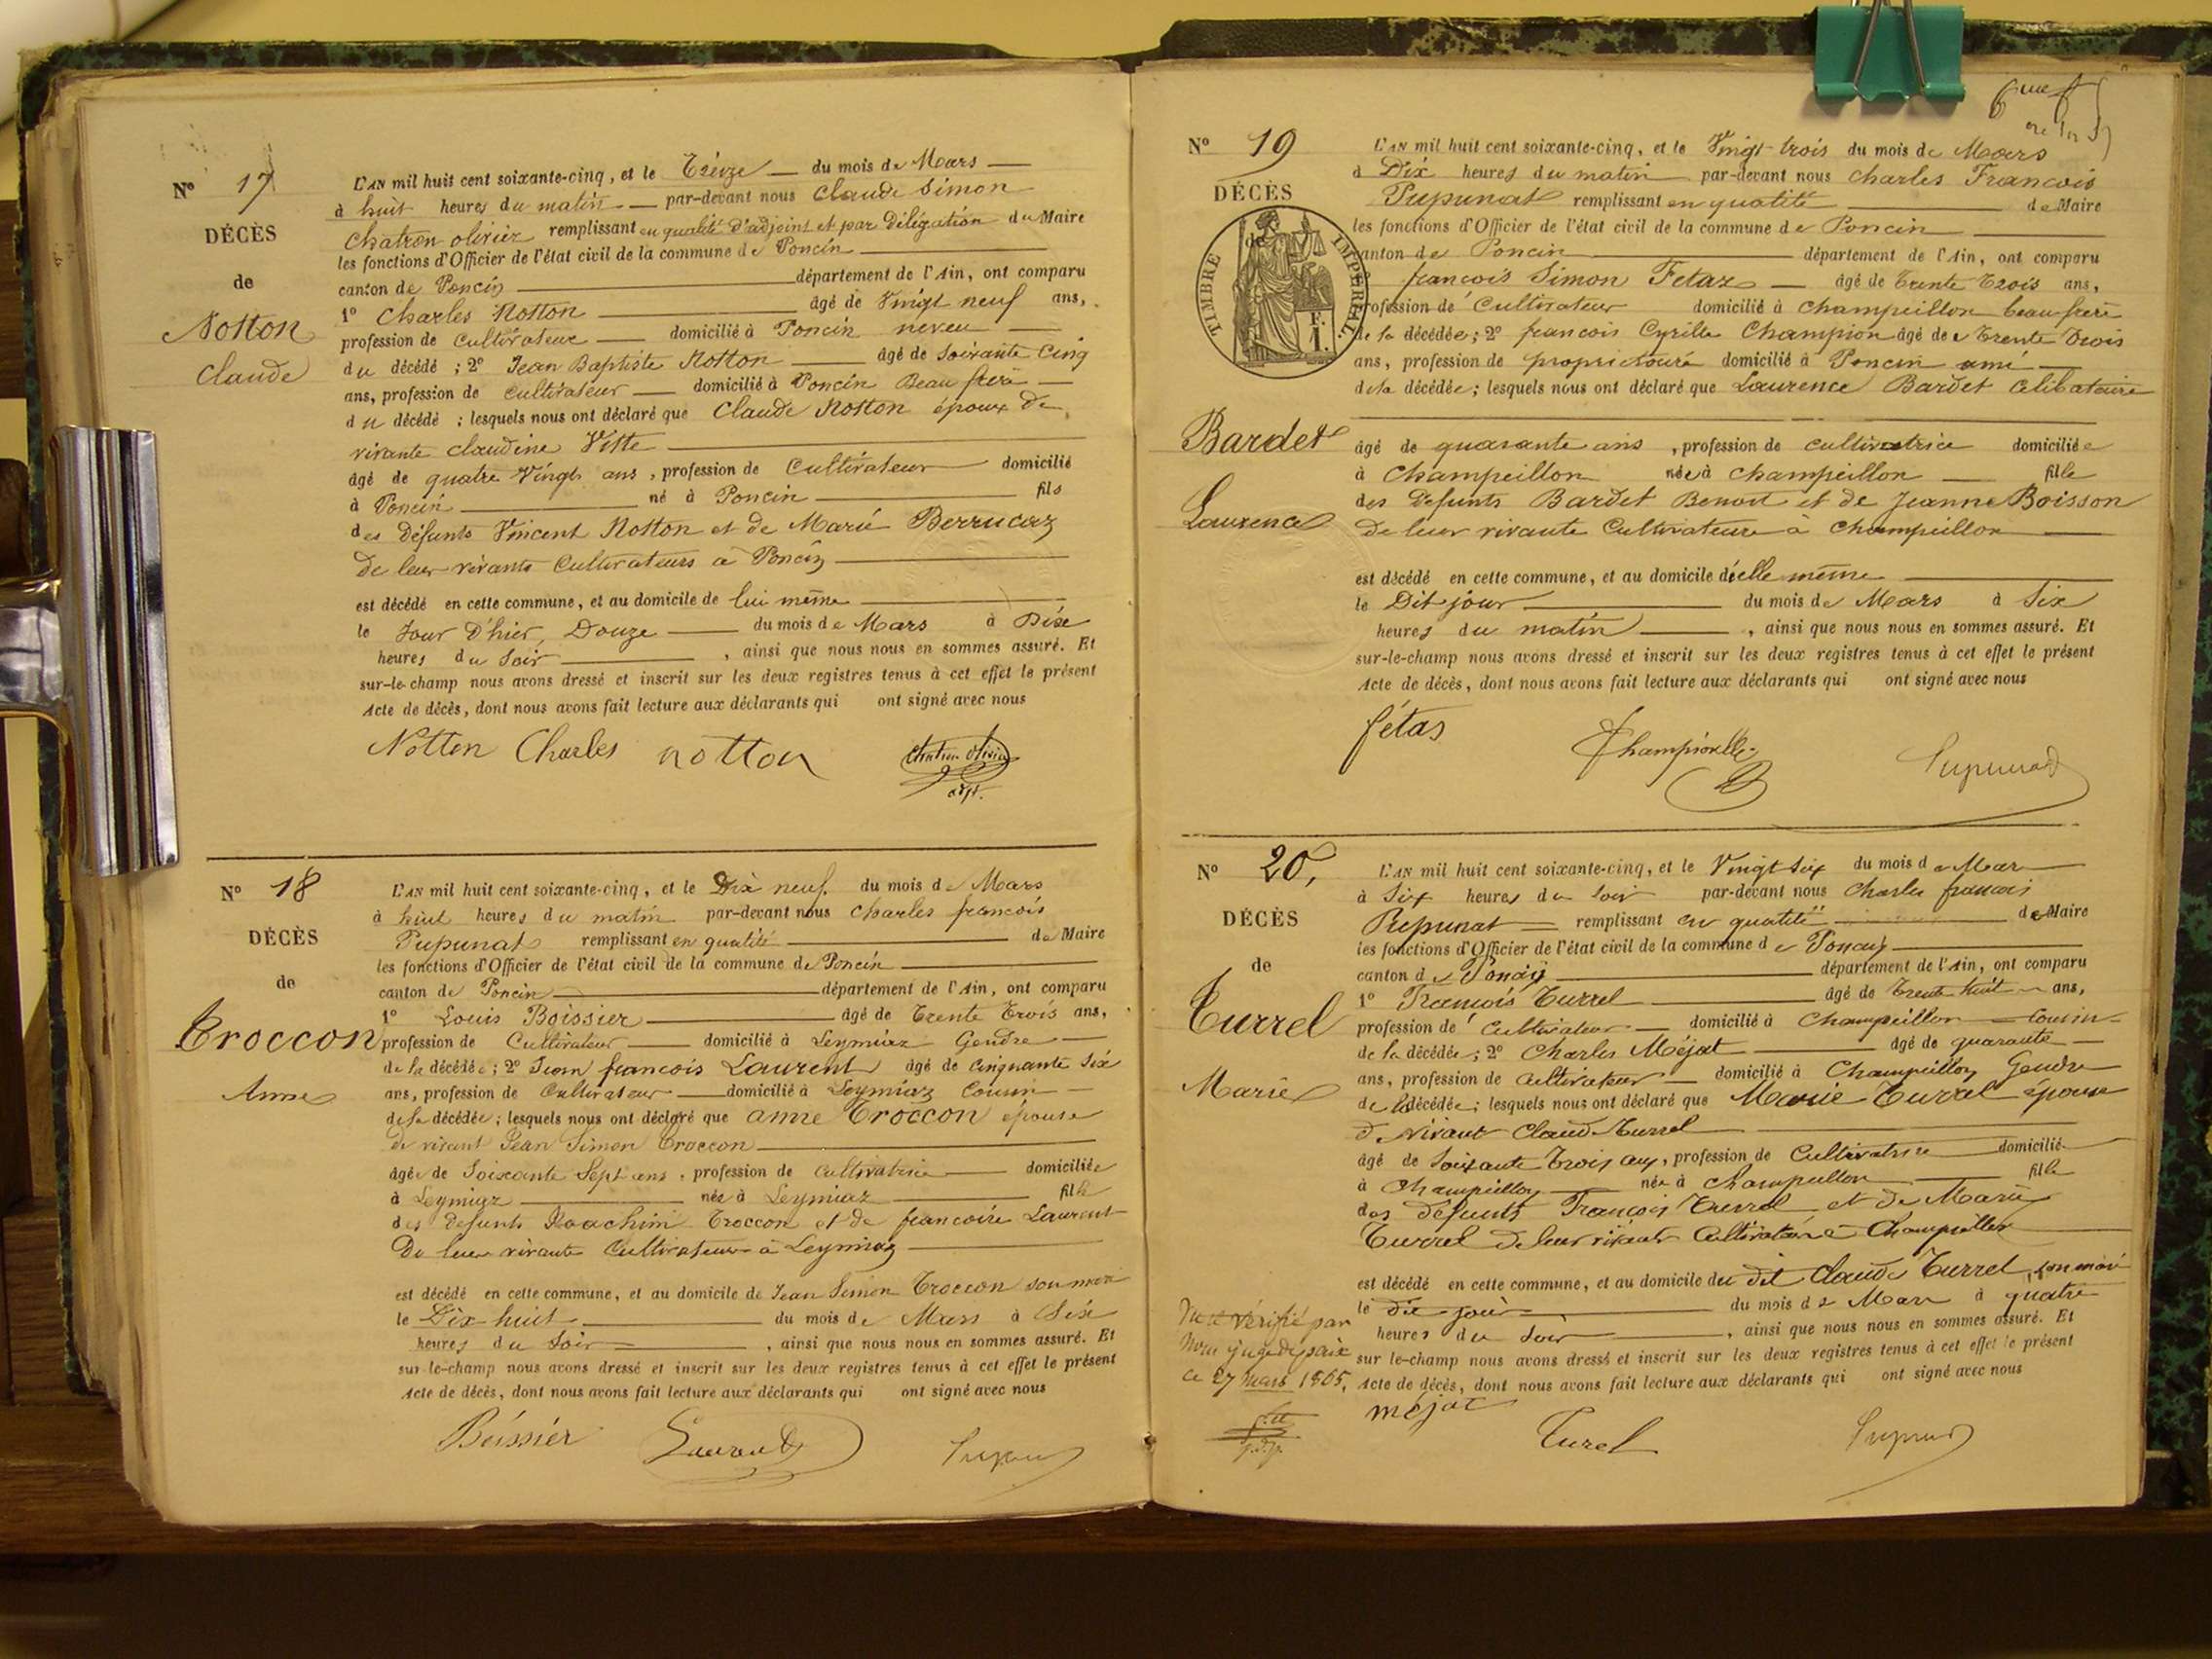 N° 17
DÉCÈS
de
Notton
Claude
L'AN mil huit cent soixante-cinq, et le Treize du mois de Mars
à huit heures du matin par-devant nous Claude Simon
Chatron olivier remplissant en qualité d'adjoint et par Délégation du Maire
les fonctions d'Officier de l'état civil de la commune de Poncin
canton de Poncin département de l'Ain, ont comparu
1° Charles Notton âgé de Vingt neuf ans,
profession de Cultivateur domicilié à Poncin neveu
du décédé ; 2° Jean Baptiste Notton âgé de Soixante Cinq
ans, profession de Cultivateur domicilié à Poncin Beau frère
du décédé ; lesquels nous ont déclaré que Claude Notton époux de
vivante Claudine Vitte
âgé de quatre Vingts ans, profession de Cultivateur domicilié
à Poncin né à Poncin fils
des Défunts Vincent Notton et de Marie Berrucaz
De leur vivants Cultivateurs à Poncin
est décédé en cette commune, et au domicile de lui même
le Jour D'hier, Douze du mois de Mars à Dix
heures du Soir , ainsi que nous nous en sommes assuré. Et
sur-le-champ nous avons dressé et inscrit sur les deux registres tenus à cet effet le présent
Acte de décès, dont nous avons fait lecture aux déclarants qui ont signé avec nous
Notton Charles notton Chatron Olivier
adjt.
N° 18
DÉCÈS
de
Troccon
Anne
L'AN mil huit cent soixante-cinq, et le Dix neuf du mois de Mars
à huit heures du matin par-devant nous Charles francois
Pupunat remplissant en qualité de Maire
les fonctions d'Officier de l'état civil de la commune de Poncin
canton de Poncin département de l'Ain, ont comparu
1° Louis Boissier âgé de Trente Trois ans,
profession de Cultivateur domicilié à Leymiaz Gendre
de la décédée; 2° Jean francois Laurent âgé de Cinquante Six
ans, profession de Cultivateur domicilié à Leymiaz Cousin
de la décédée; lesquels nous ont déclaré que anne Troccon épouse
de vivant Jean Simon Troccon
âgée de Soixante Sept ans, profession de Cultivatrice domiciliée
à Leymiaz née à Leymiaz fille
des Defunts Troccon et de francoise Laurent
De leur vivants Cultivateurs à Leymiaz
est décédé en cette commune, et au domicile de Jean Simon Troccon son mari
le Dix huit du mois de Mars à Six
heures du Soir , ainsi que nous nous en sommes assuré. Et
sur-le-champ nous avons dressé et inscrit sur les deux registres tenus à cet effet le présent
Acte de décès, dont nous avons fait lecture aux déclarants qui ont signé avec nous
Boissier Laurent Pupunat
N° 19
DÉCÈS
de
TIMBRE IMPÉRIAL.
F.
1.
Bardet
Laurence
L'AN mil huit cent soixante-cinq, et le Vingt trois du mois de Mars
à Dix heures du matin par-devant nous Charles Francois
Pupunat remplissant en qualité de Maire
les fonctions d'Officier de l'état civil de la commune de Poncin
canton de Poncin département de l'Ain, ont comparu
francois Simon Fetaz âgé de Trente Trois ans,
profession de Cultivateur domicilié à Champeillon beau frère
de la décédée; 2° francois Cyrille Champion âgé de Trente Trois
ans, profession de propriétaire domicilié à Poncin ami
de la décédée; lesquels nous ont déclaré que Laurence Bardet Célibataire
âgé de quarante ans, profession de cultivatrice domiciliée
à Champeillon née à Champeillon fille
des Défunts Bardet Benoit et de Jeanne Boisson
De leur vivants Cultivateurs à Champeillon
est décédé en cette commune, et au domicile d'elle même
le Dit jour du mois de Mars à Six
heures du matin , ainsi que nous nous en sommes assuré. Et
sur-le-champ nous avons dressé et inscrit sur les deux registres tenus à cet effet le présent
Acte de décès, dont nous avons fait lecture aux déclarants qui ont signé avec nous
fétas Pupunat
N° 20,
DÉCÈS
de
Turrel
Marie
L'AN mil huit cent soixante-cinq, et le Vingt Six du mois de Mars
à Six heures du Soir par-devant nous Charles francois
Pupunat remplissant en qualité de Maire
les fonctions d'Officier de l'état civil de la commune de Poncin
canton de Poncin département de l'Ain, ont comparu
1° François Turrel âgé de Trente huit ans,
profession de Cultivateur domicilié à Champeillon Cousin
de la décédée; 2° Charles Méjat âgé de quarante
ans, profession de Cultivateur domicilié à Champeillon Gendre
de la décédée; lesquels nous ont déclaré que Marie Turrel épouse
de vivant Claude Turrel
âgé de Soixante Trois ans, profession de Cultivatrice domicilié
à Champeillon née à Champeillon fille
des défunts François Turrel et de Marie
Turrel de leur vivants Cultivateurs à Champeillon
est décédé en cette commune, et au domicile du dit Claude Turrel, son mari
le dit jour du mois de Mars à quatre
heures du Soir , ainsi que nous nous en sommes assuré. Et
sur-le-champ nous avons dressé et inscrit sur les deux registres tenus à cet effet le présent
Acte de décès, dont nous avons fait lecture aux déclarants qui ont signé avec nous
Vu et vérifié par
Nous juge de paix
Ce 27 mars 1865,
méjat Turel Pupunat